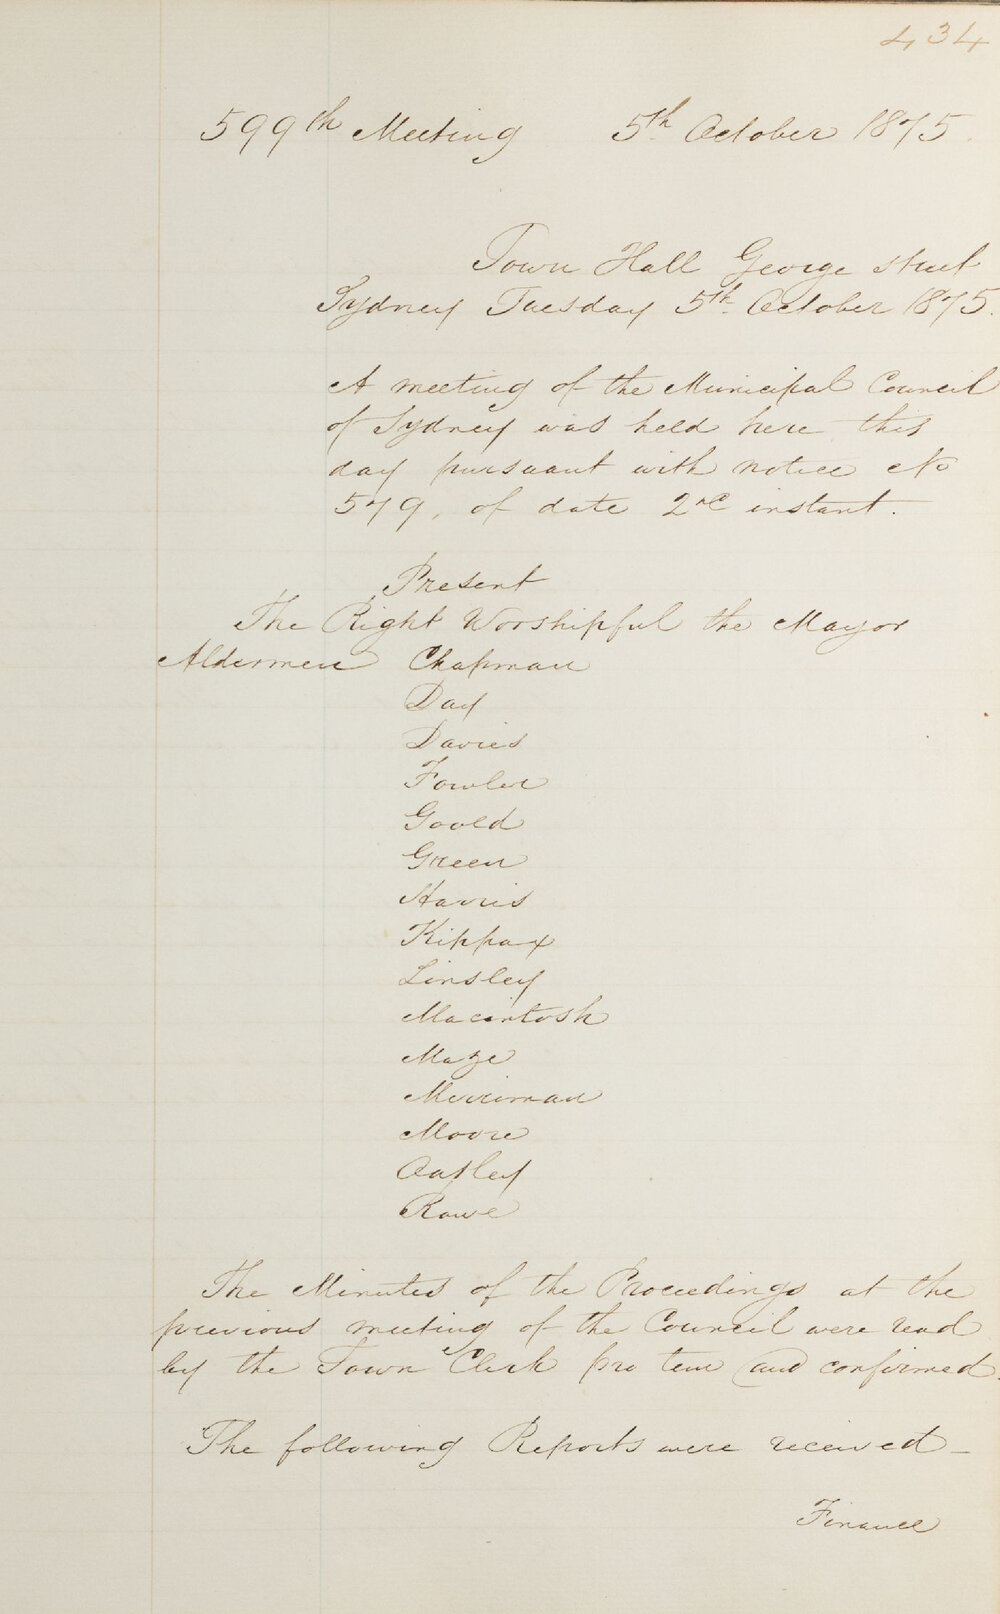 434
599th Meeting 5th October 1875.
Town Hall George street
Sydney Tuesday 5th October 1875.
A meeting of the Municipal Council
of Sydney was held here this
day pursuant with notice No
579, of date 2nd instant.
Present
The Right Worshipful the Mayor
Aldermen Chapman
Day
Davies
Fowler
Goold
Green
Harris
Kippax
Linsley
Macintosh
Maze
Merriman
Moore
Oatley
Rowe
The Minutes of the Proceedings at the
previous meeting of the Council were read
by the Town Clerk pro tem and confirmed.
The following Reports were received –
Finance